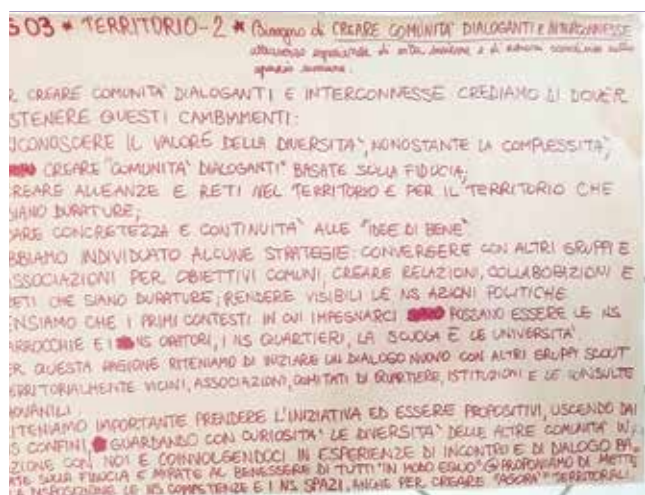 S 03 * TERRITORIO-2 * Bisogno di CREARE COMUNITA' DIALOGANTI E INTERCONNESSE
attraverso esperienze di vita insieme e di
spazio comune.
R CREARE COMUNITA' DIALOGANTI E INTERCONNESSE CREDIAMO DI DOVER
STENERE QUESTI CAMBIAMENTI:
ICONOSCERE IL VALORE DELLA DIVERSITA', NONOSTANTE LA COMPLESSITA';
CREARE "COMUNITA' DIALOGANTI" BASATE SULLA FIDUCIA;
REARE ALLEANZE E RETI NEL TERRITORIO E PER IL TERRITORIO CHE
IANO DURATURE;
ARE CONCRETEZZA E CONTINUITA' ALLE "IDEE DI BENE".
BBIAMO INDIVIDUATO ALCUNE STRATEGIE: CONVERGERE CON ALTRI GRUPPI E
SSOCIAZIONI PER OBIETTIVI COMUNI, CREARE RELAZIONI, COLLABORAZIONI E
ETI CHE SIANO DURATURE; RENDERE VISIBILI LE NS AZIONI POLITICHE
ENSIAMO CHE I PRIMI CONTESTI IN CUI IMPEGNARCI POSSANO ESSERE LE NS
ARROCCHIE E I NS ORATORI, I NS QUARTIERI, LA SCUOLA E LE UNIVERSITA'.
ER QUESTA RAGIONE RITENIAMO DI INIZIARE UN DIALOGO NUOVO CON ALTRI GRUPPI SCOUT
ERRITORIALMENTE VICINI, ASSOCIAZIONI, COMITATI DI QUARTIERE, ISTITUZIONI E LE CONSULTE
IOVANILI.
ITENIAMO IMPORTANTE PRENDERE L'INIZIATIVA ED ESSERE PROPOSITIVI, USCENDO DAI
S CONFINI, GUARDANDO CON CURIOSITA' LE DIVERSITA' DELLE ALTRE COMUNITA' IN
ZIONE CON NOI E COINVOLGENDOCI IN ESPERIENZE DI INCONTRO E DI DIALOGO BA-
TE SULLA FIDUCIA E MIRATE AL BENESSERE DI TUTTI "IN MODO EQUO" PROPONIAMO DI METTE
A DISPOSIZIONE LE NS COMPETENZE E I NS SPAZI, ANCHE PER CREARE "AGORA'" TERRITORIALI